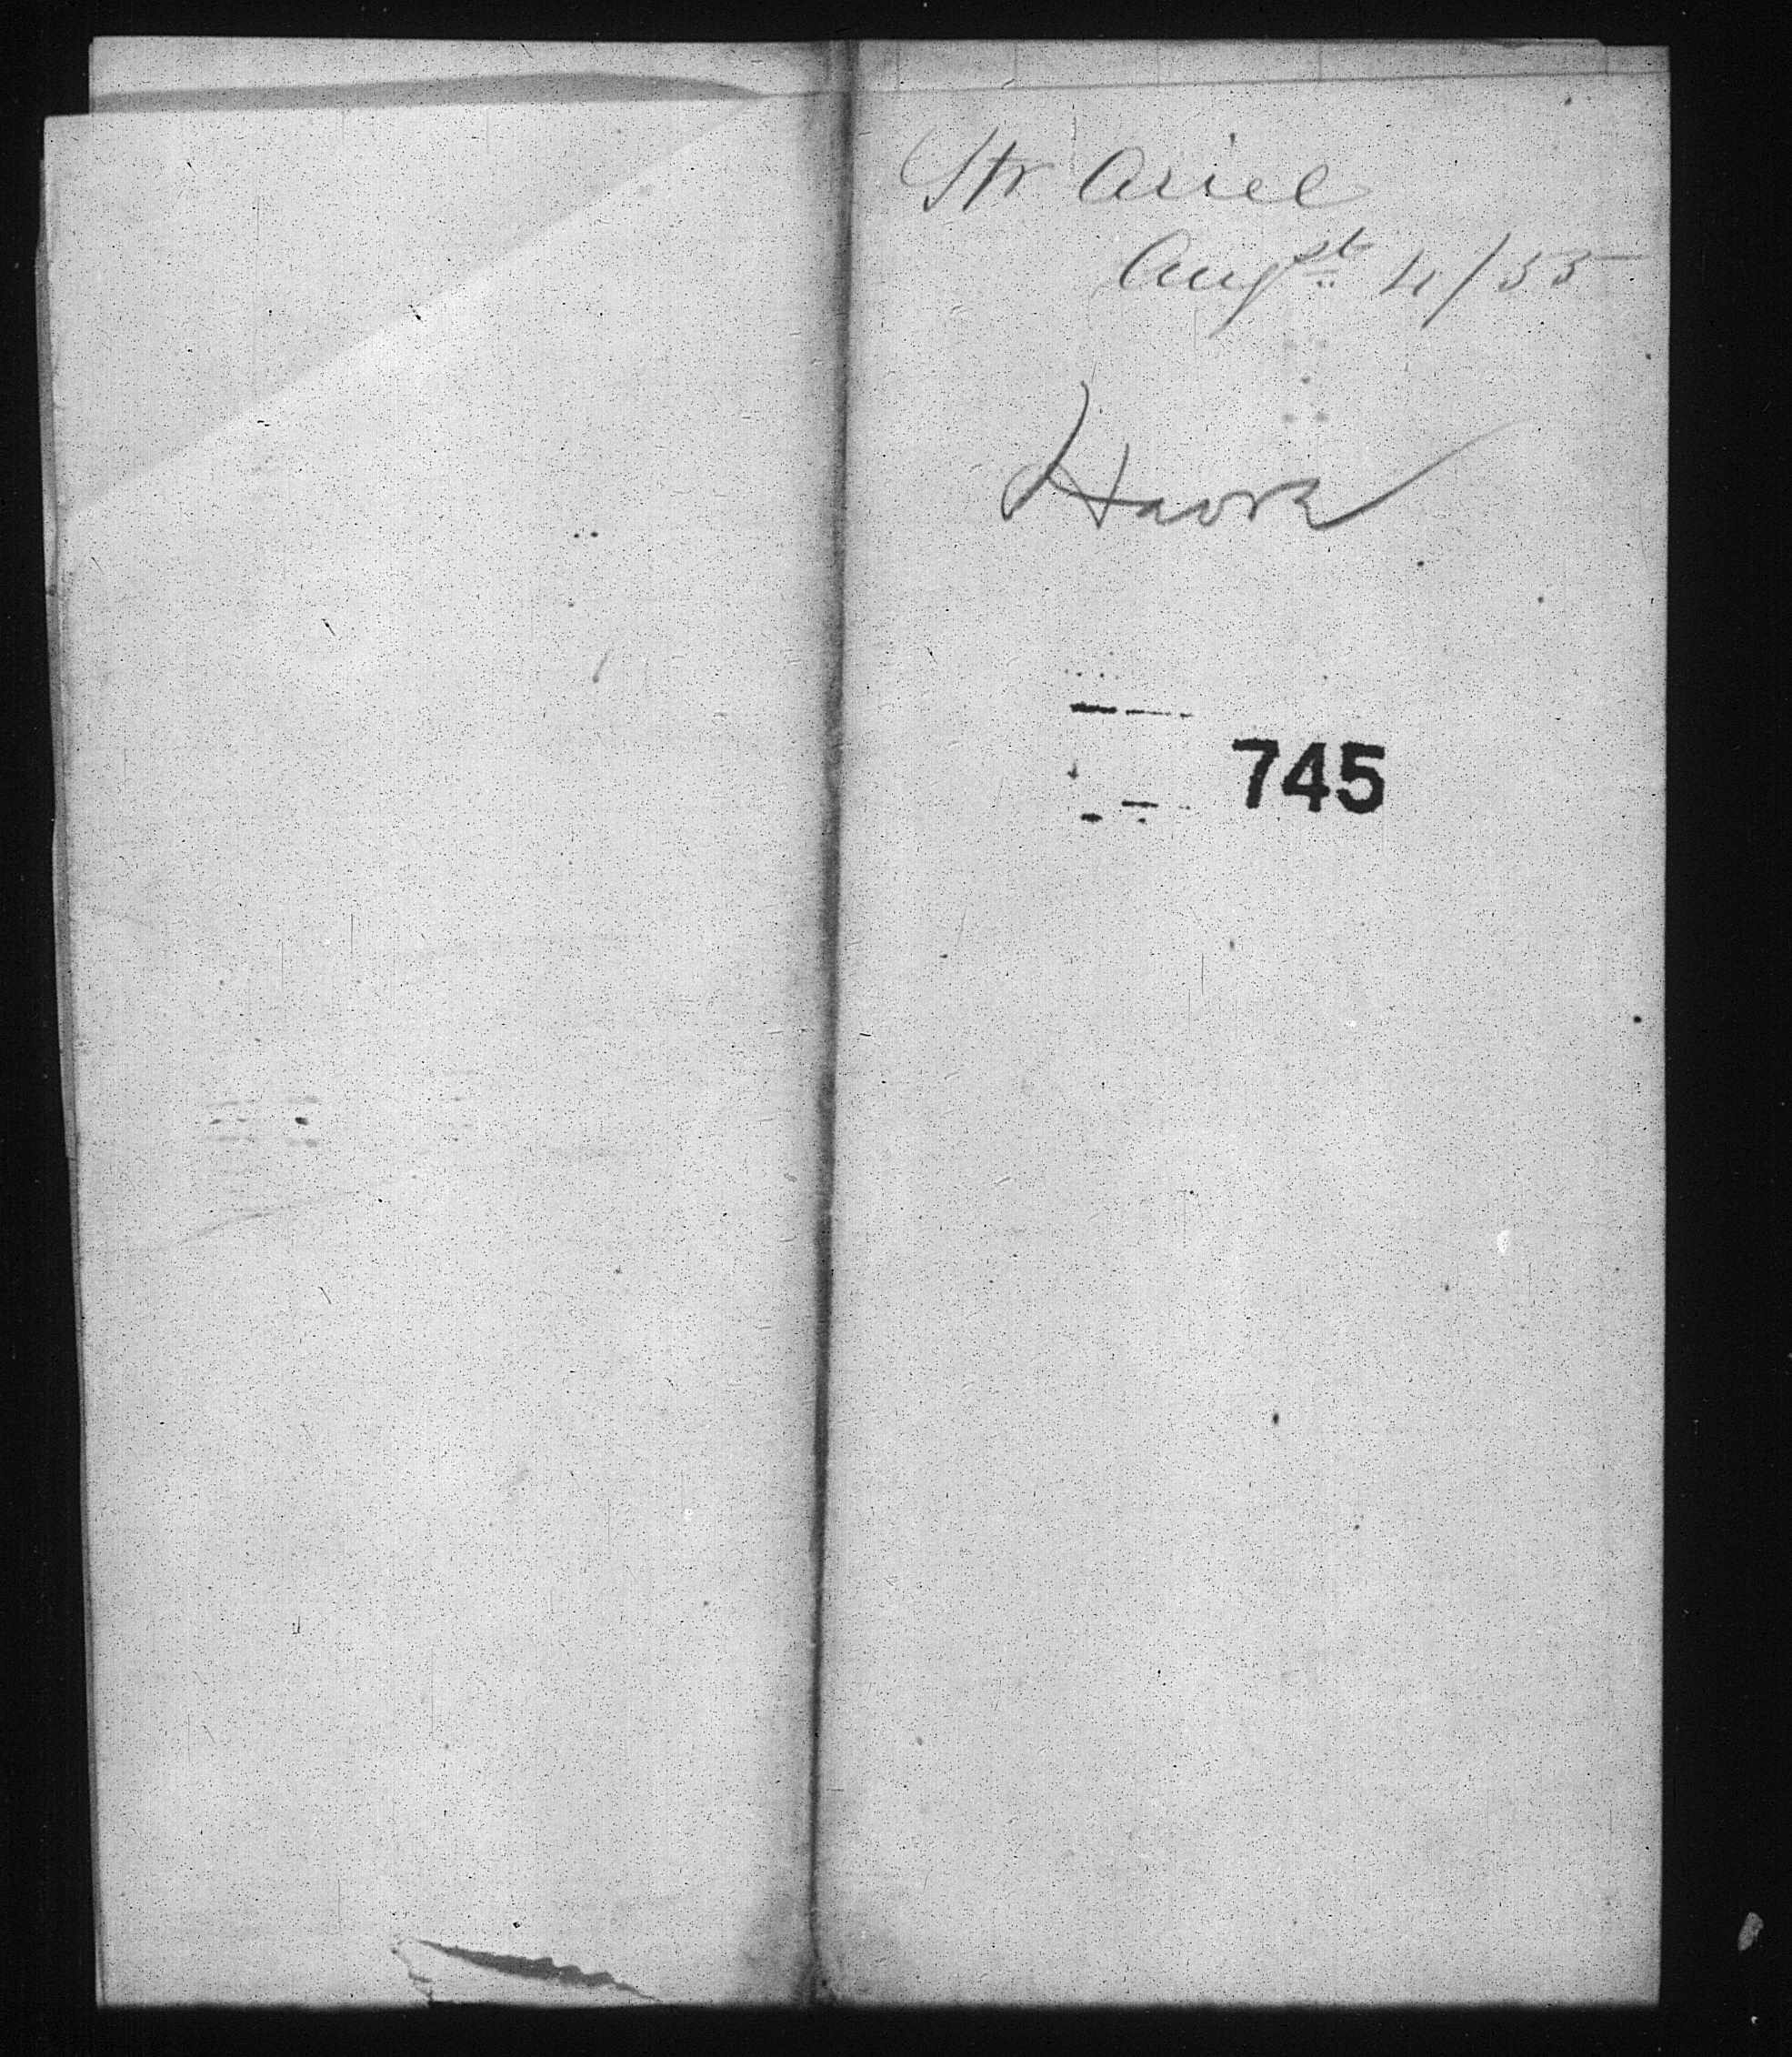 Str Ariel
Augst 4/55
Havre
745